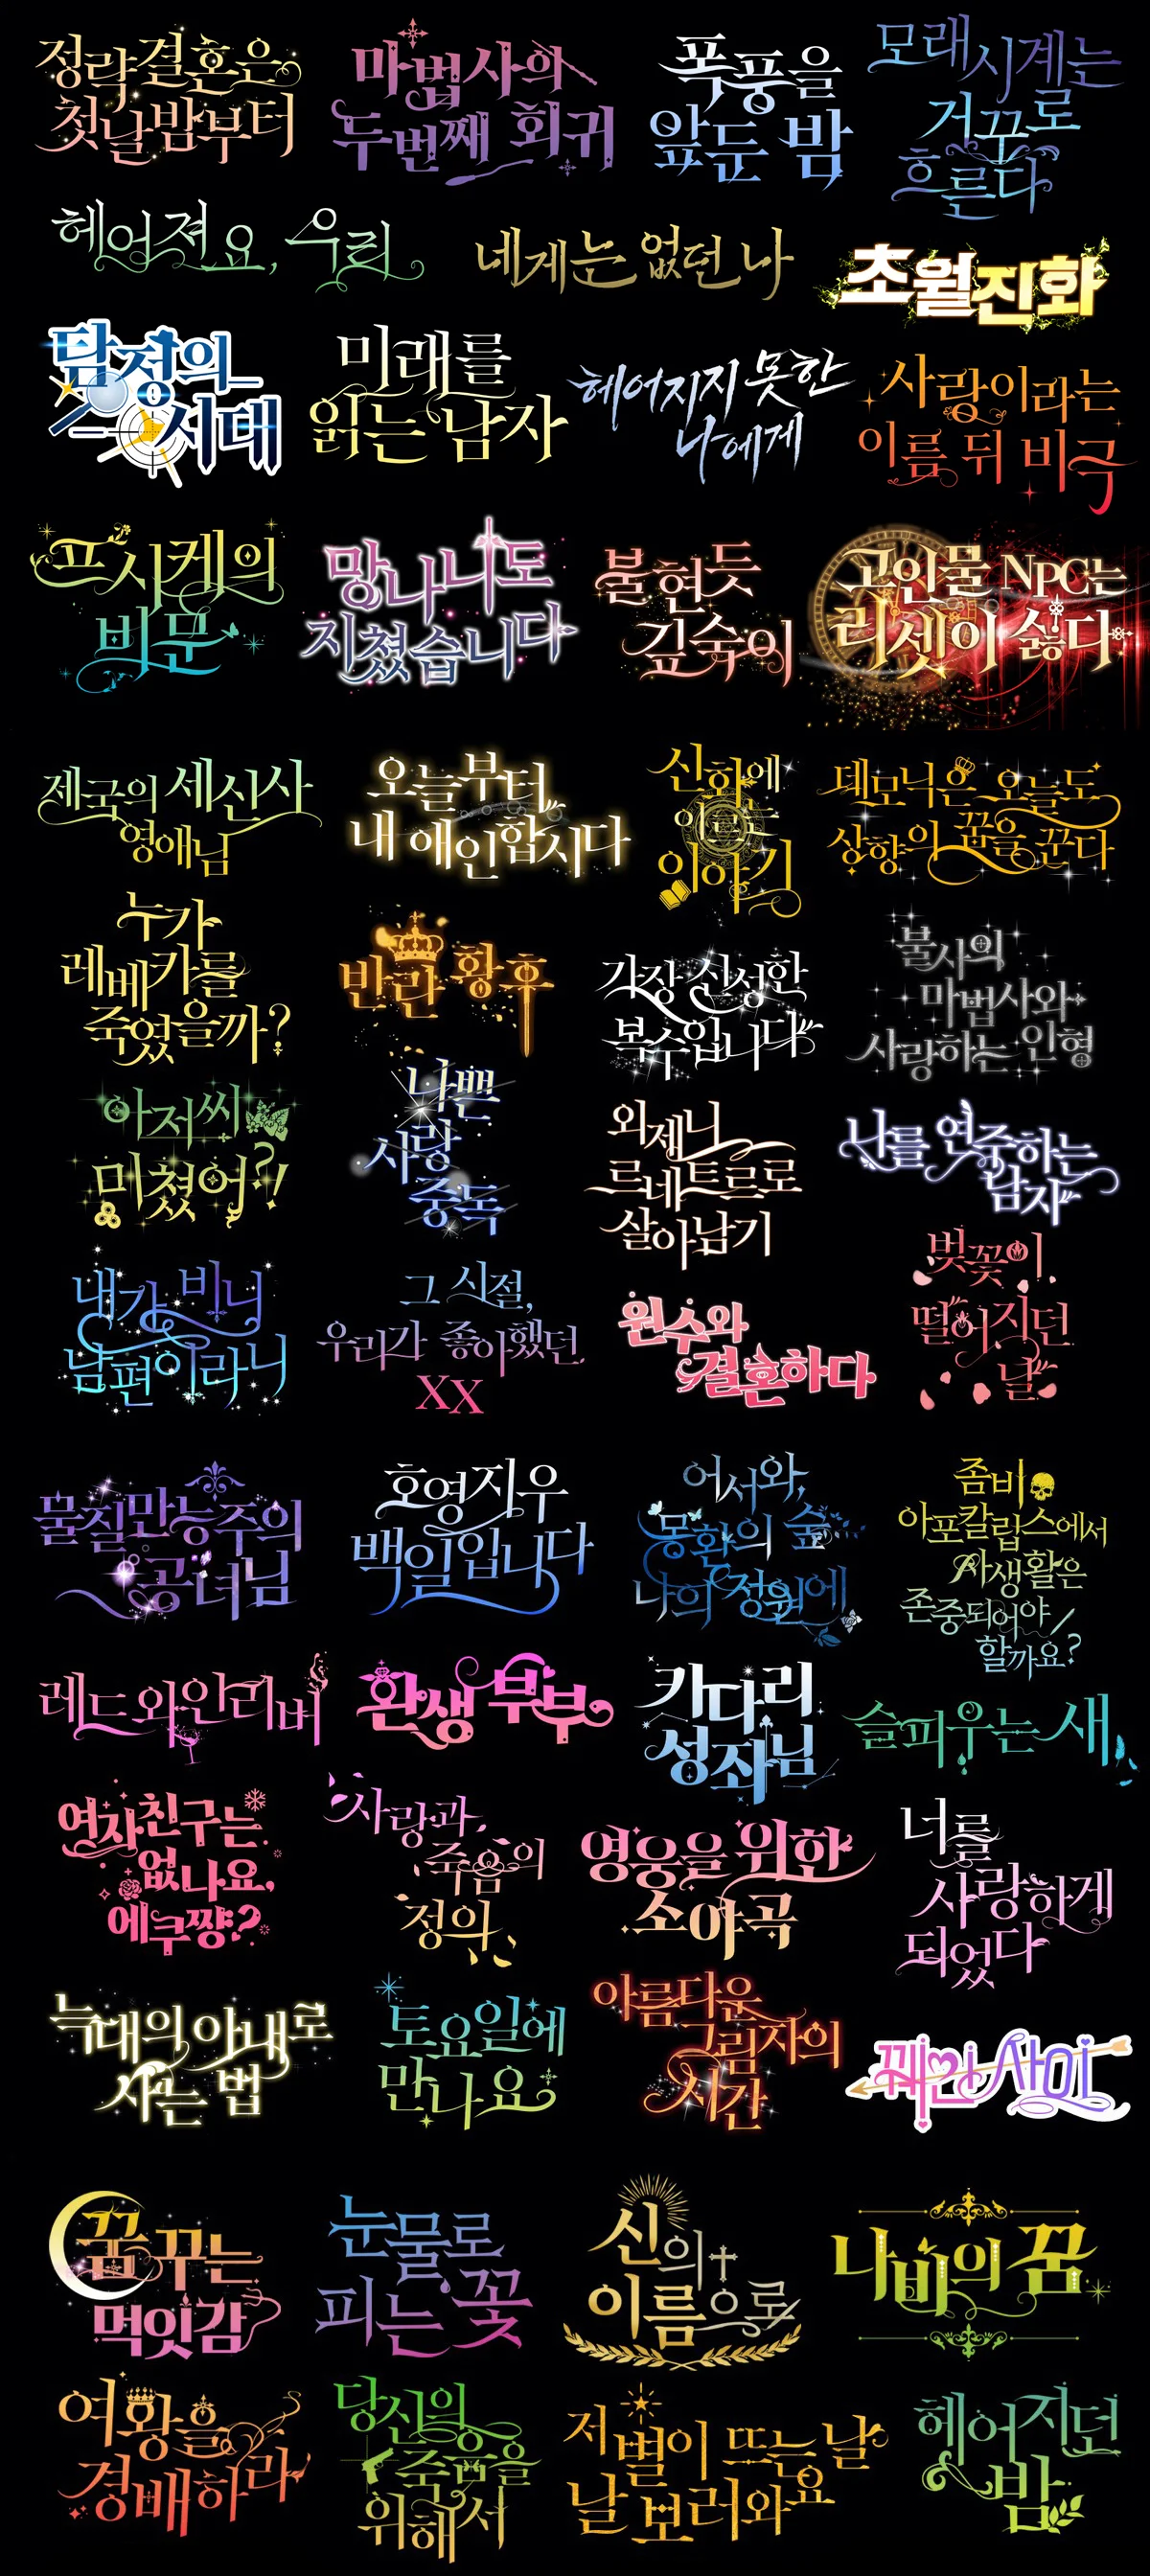 정략결혼은
첫날밤부터
마법사의
두번째 회귀
폭풍을
앞둔 밤
모래시계는
거꾸로
흐른다
헤어져요, 우리
네게는 없던 나
초월진화
탐정의
시대
미래를
읽는 남자
헤어지지 못한
나에게
사랑이라는
이름 뒤 비극
프시케의
비문
망나니도
지쳤습니다
불현듯
깊숙이
고인물 NPC는
리셋이 싫다
제국의 세신사
영애님
오늘부터
내 애인합시다
신화에
이르는
이야기
데모닉은 오늘도
상향의 꿈을 꾼다
누가
레베카를
죽였을까?
반란 황후
가장 신성한
복수입니다
불사의
마법사와
사랑하는 인형
아저씨
미쳤어?!
나쁜
사랑
중독
외제니
르네트르로
살아남기
나를 연중하는
남자
내가 비닌
남편이라니
그 시절,
우리가 좋아했던
XX
원수와
결혼하다
벚꽃이
떨어지던
날
물질만능주의
공녀님
호영지우
백일입니다
어서와,
몽환의 숲
나의 정원에
좀비
아포칼립스에서
사생활은
존중되어야
할까요?
레드 와인 리버
환생 부부
키다리
성좌님
슬피우는 새
여자친구는
없나요,
에쿠쨩?
사랑과
죽음의
정의
영웅을 위한
소야곡
너를
사랑하게
되었다
늑대의 아내로
사는 법
토요일에
만나요
아름다운
그림자의
시간
깨인 사이
꿈꾸는
먹잇감
눈물로
피는 꽃
신의
이름으로
나비의 꿈
여왕을
경배하라
당신의
죽음을
위해서
저 별이 뜨는 날
날 보러와요
헤어지던
밤